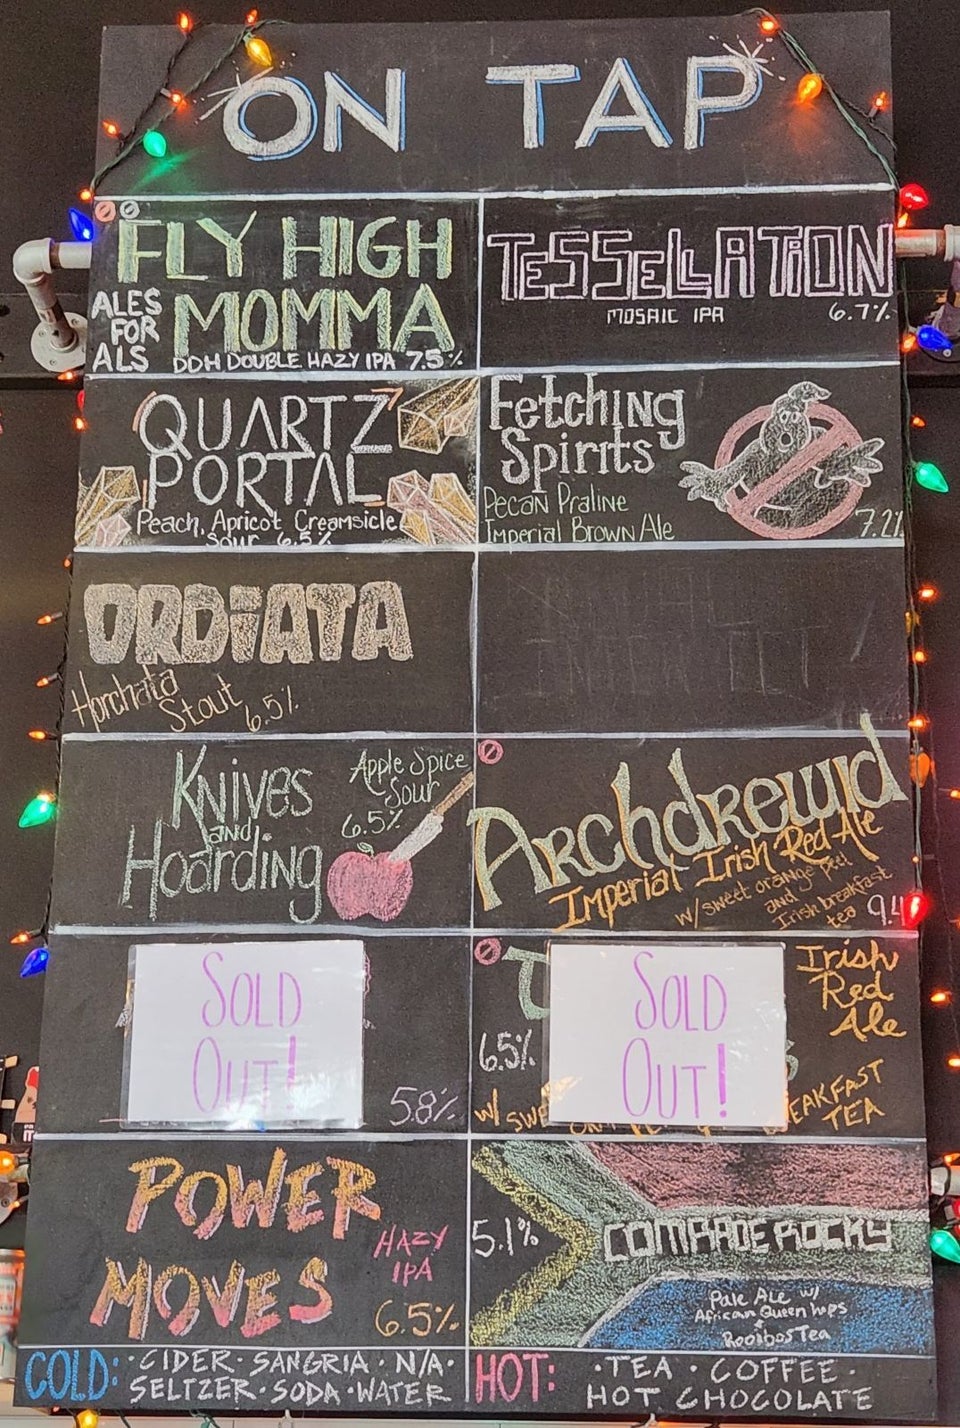 ON TAP
FLY HIGH
MOMMA
ALES
FOR
ALS
DDH DOUBLE HAZY IPA 7.5%
TESSELLATION
MOSAIC IPA 6.7%
QUARTZ
PORTAL
Peach, Apricot Creamsicle
Sour 6.5%
Fetching
Spirits
Pecan Praline
Imperial Brown Ale
7.2%
ORDiATA
Horchata
Stout 6.5%
Knives
and
Hoarding
Apple Spice
Sour
6.5%
Archdrewid
Imperial Irish Red Ale
w/ sweet orange peel
and
Irish breakfast
tea 9.4
SOLD
OUT!
5.8%
SOLD
OUT!
Irish
Red
Ale
6.5%
w/
TEA
POWER
MOVES
HAZY
IPA
6.5%
5.1%
COMRADE ROCKY
Pale Ale w/
African Queen hops
+
Rooibos Tea
COLD: · CIDER · SANGRIA · N/A ·
SELTZER · SODA · WATER
HOT: · TEA · COFFEE ·
HOT CHOCOLATE